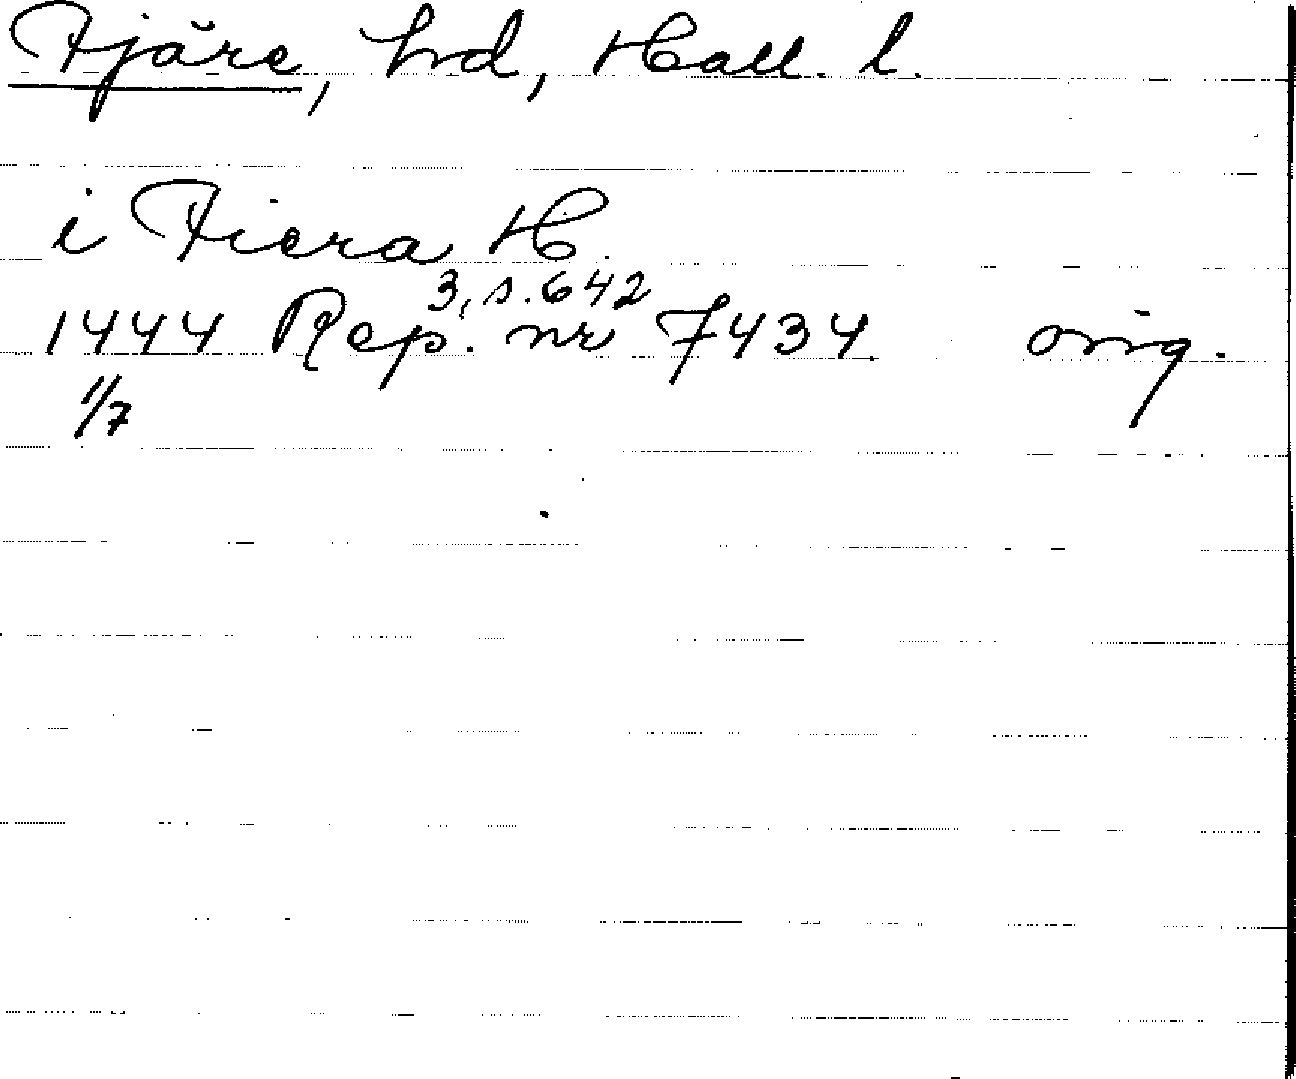 Fjäre, hd, Hall. l.
i Fiera H.
3, s. 642
1444 Rep. nr 7434. orig.
1/7